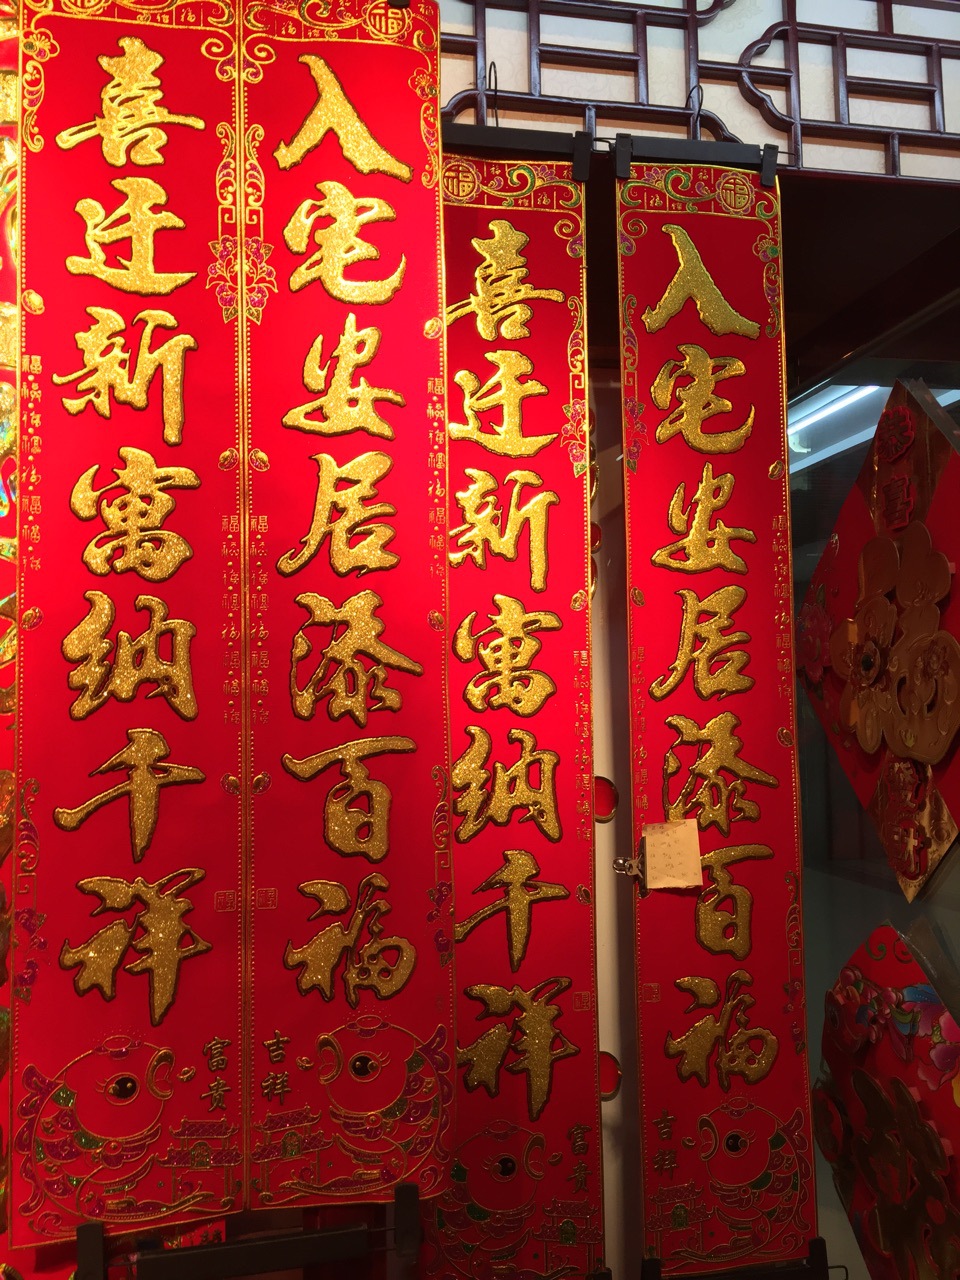 入宅安居添百福
吉祥
喜迁新寓纳千祥
富贵
入宅安居添百福
吉祥
喜迁新寓纳千祥
富贵